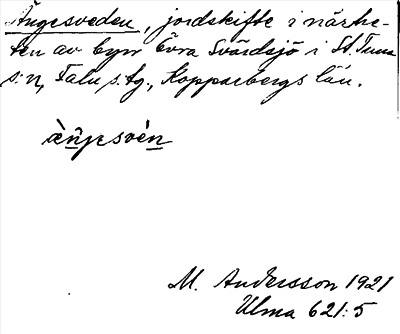 Ängesveden, jordskifte i närhe-
ten av byn Övra Svärdsjö i St. Tuna
s:n, Falu s. tg., Kopparbergs län.
M. Andersson 1921
Ulma 621:5